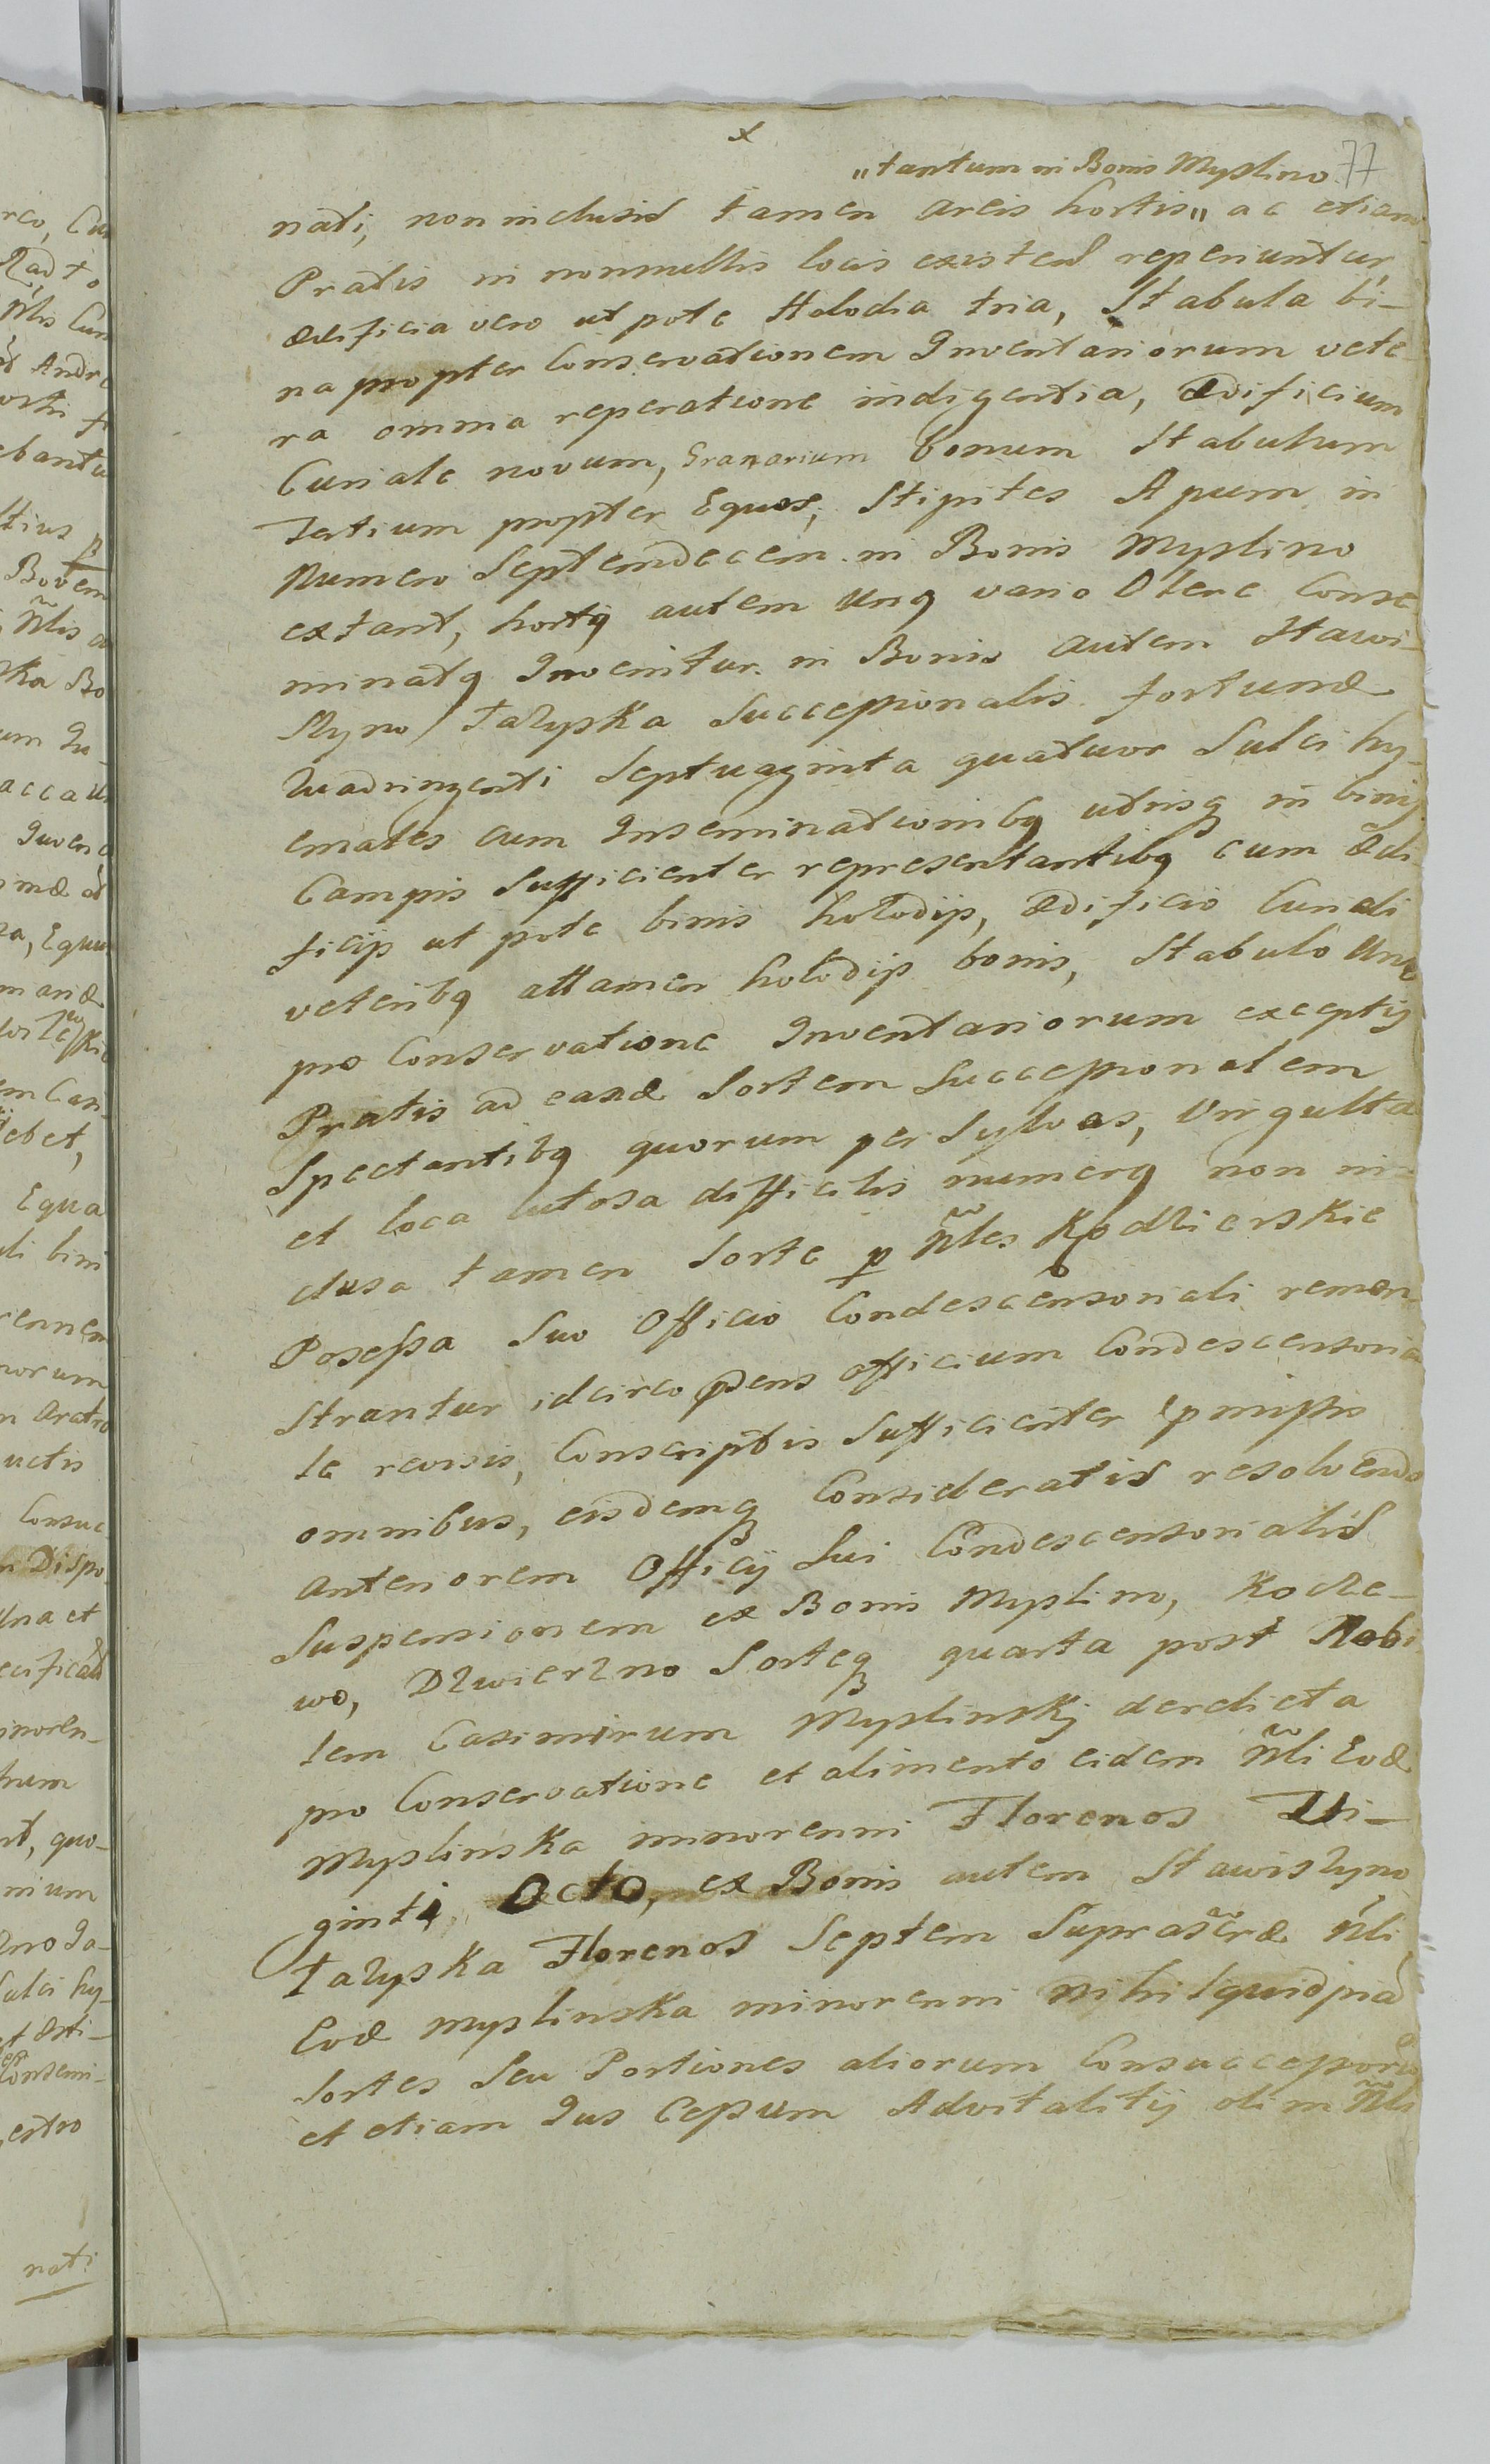 x
„tantum in Bonis Myslino 77
nati, non inclusis tamen areis hortis„ ac etiam
Pratis in nonnullis locis existen̄ reperiuntur,
ædificia vero ut pote Holodia tria, Stabula bi-
na propter Conservationem Inventariorum vete-
ra omnia reperatione indigentia, ædificium
Curiale novum, Granarium bonum Stabulum
Tertium propter Equos, Stipites Apum in
Numero Septemdecem in Bonis Myslino
extant, hortq autem Unq vario Olere Conse-
minatq Invenitur. in Bonis autem Stawi-
szyno Łazyska Successionalis fortunæ
Quadringenti Septuaginta quatuor Sulci hy-
emales cum Inseminationibq utrisq in binis
Campis Sufficienter representantibq cum ædi-
ficijs ut pote binis hołodijs, ædificio Curiali
veteribq attamen hołodijs bonis, Stabulo Uno
pro Conservatione Inventariorum exceptis
Pratis ad eandæ Sortem Successionalem
Spectantibq quorum per Sylvas, Virgulta
et loca lutosa difficilis numerq non in-
clusa tamen Sorte p Ñles Kodzierskie
Possessa Suo Officio Condescensoriali remon-
strantur idcirco p̄sens officium Condescensoria-
le revisis, Conscriptis Sufficienter p̄missis
omnibus, eisdemq Consideratis resolvendo
anteriorem Officij Sui Condescensorialis
Suspensionem ex Bonis Myslino, Kocze-
wo, Dzwierzno Sorteq quarta post Nobi-
lem Casimirum Myslinskj derelicta
pro Conservatione et alimento eidem Ñli Evæ
Myslinska minorenni Florenos Tri-
ginti Octo, ex Bonis autem Stawiszyno
Łazyska Florenos Septem Suprascr̃æ Ñli
Evæ Myslinska minorenni nihilquidpiã
Sortes Seu Portiones aliorum Consuccessorũ
et etiam Jus Cessum Advitalitij olim Ñli